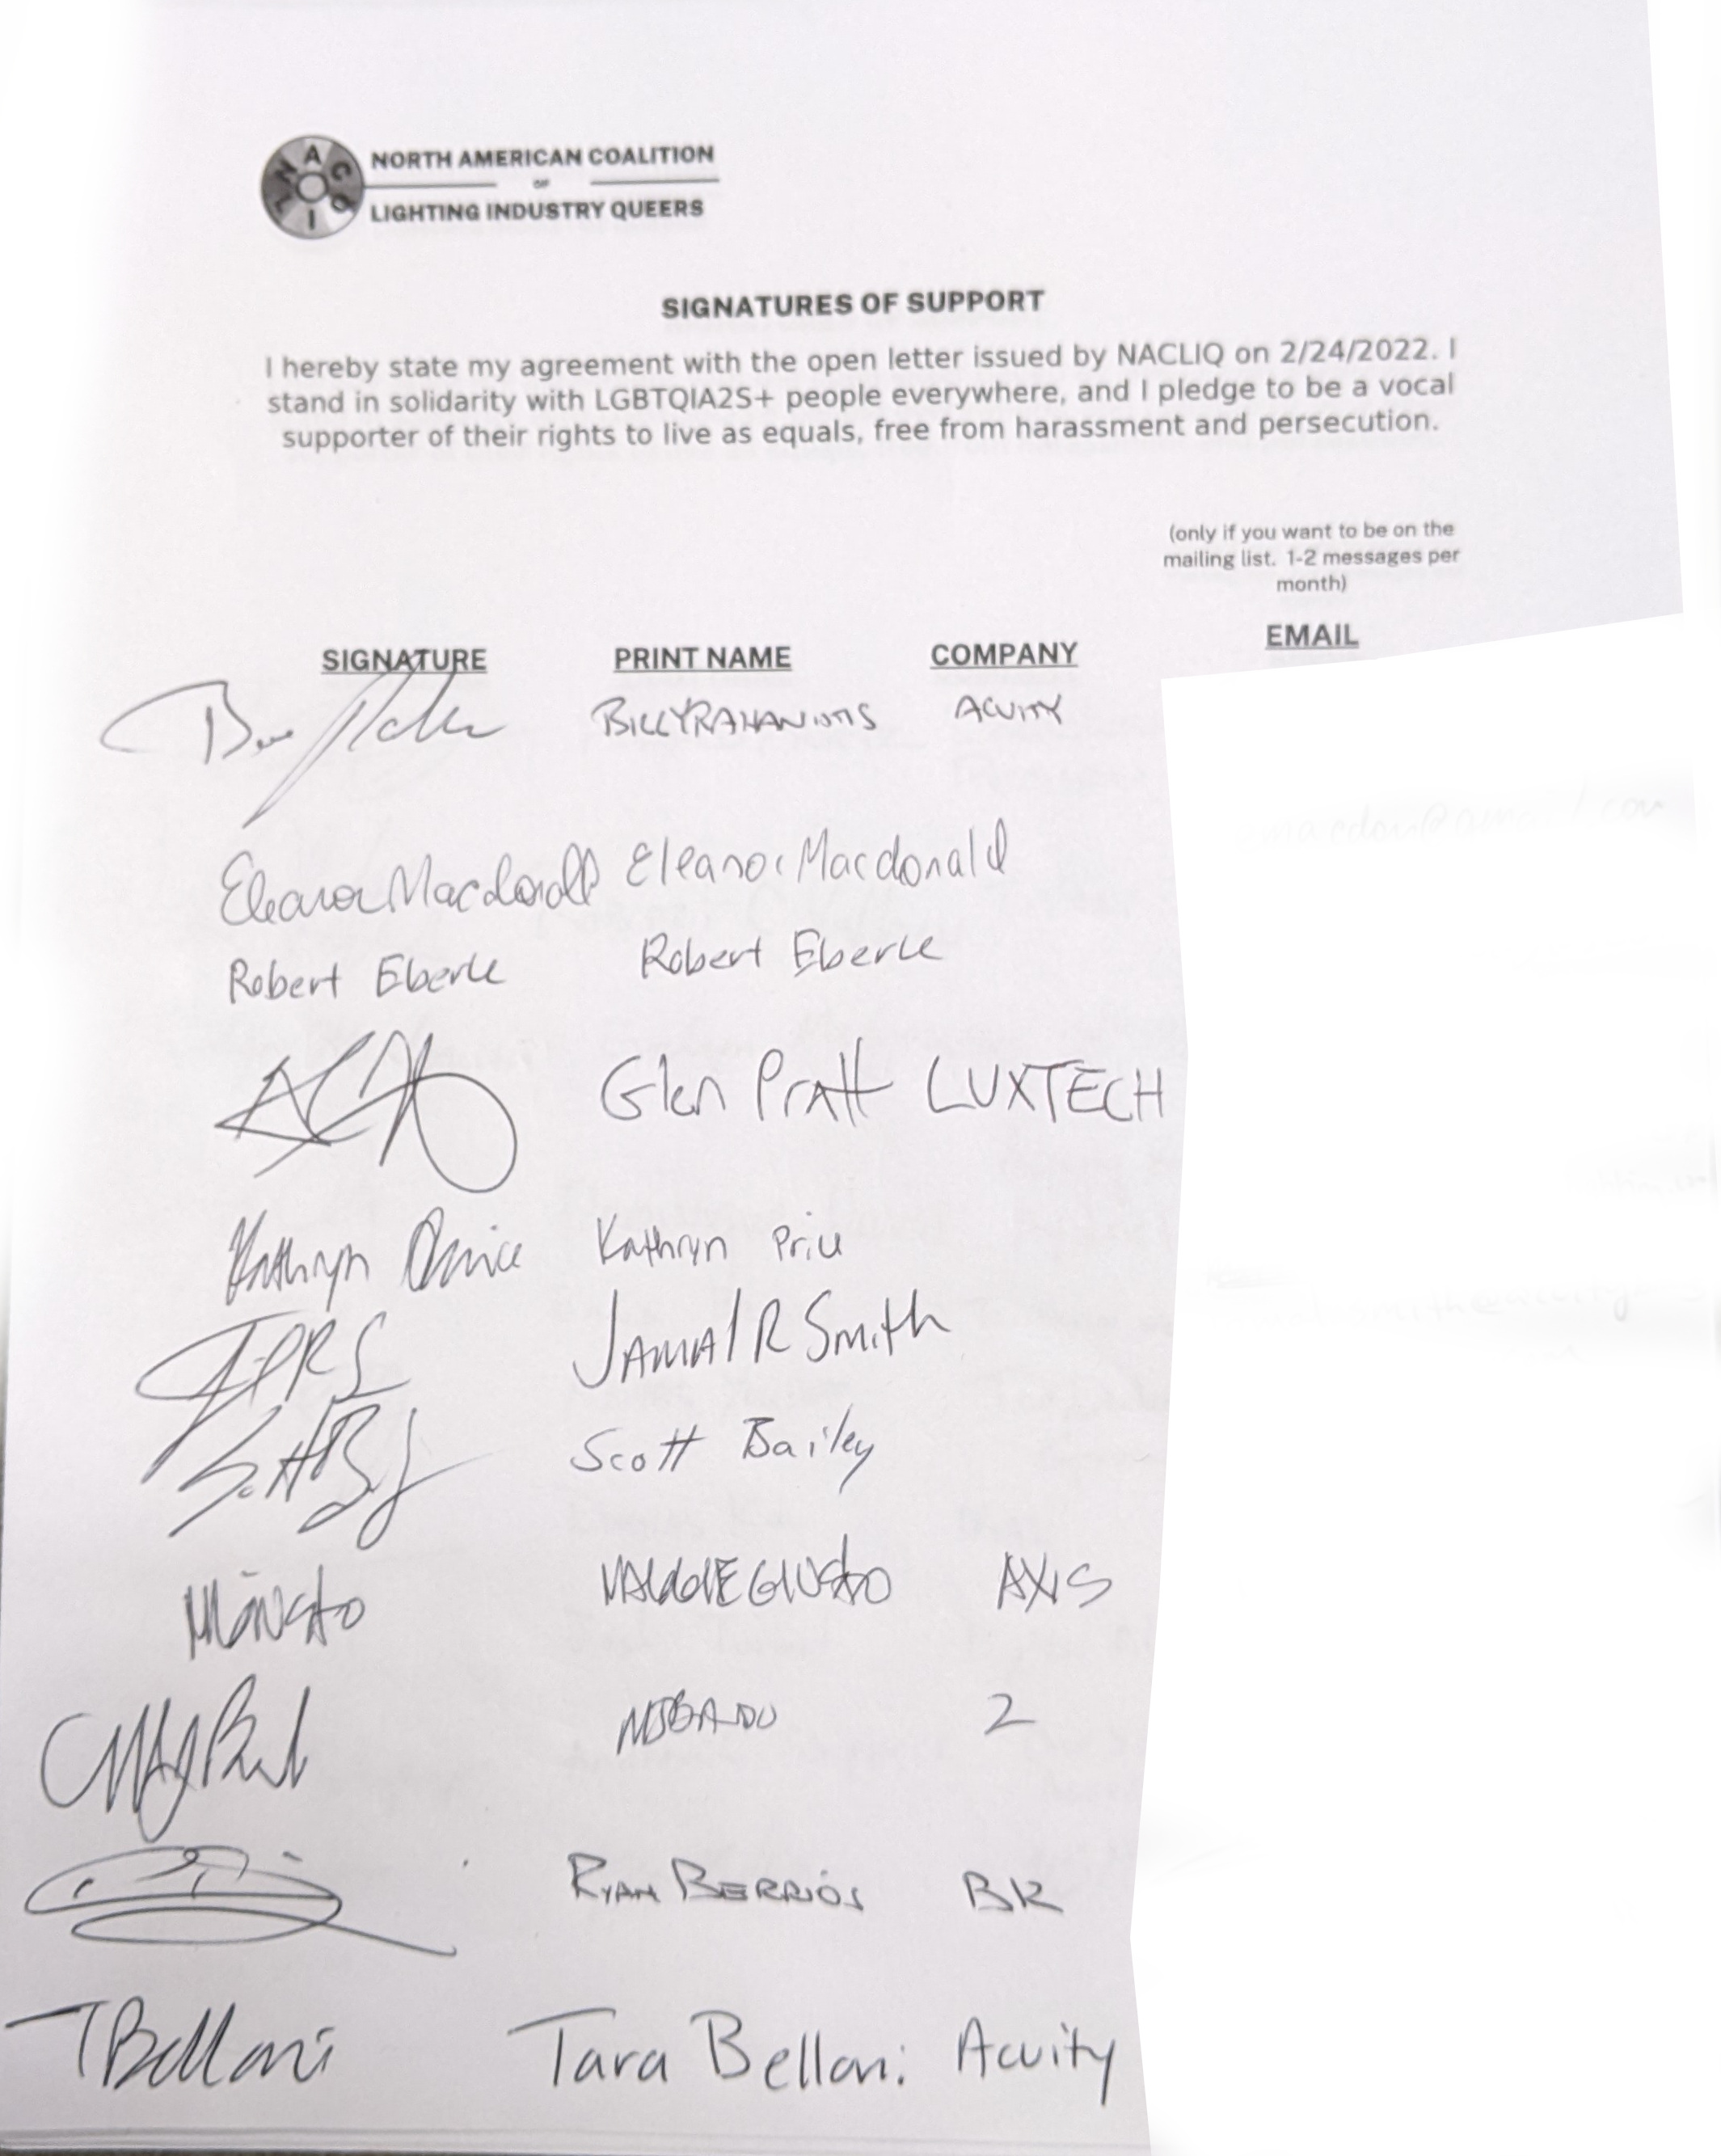 NACLIQ
NORTH AMERICAN COALITION
OF
LIGHTING INDUSTRY QUEERS
SIGNATURES OF SUPPORT
I hereby state my agreement with the open letter issued by NACLIQ on 2/24/2022. I
stand in solidarity with LGBTQIA2S+ people everywhere, and I pledge to be a vocal
supporter of their rights to live as equals, free from harassment and persecution.
(only if you want to be on the
mailing list. 1-2 messages per
month)
SIGNATURE PRINT NAME COMPANY EMAIL
ACUITY
Eleanor Macdonald Eleanor Macdonald
Robert Eberle Robert Eberle
Glen Pratt LUXTECH
Kathryn Price Kathryn Price
JAMAl R Smith
Scott Bailey
AXIS
2
RYAN BERRIOS BK
TBelloni Tara Belloni Acuity